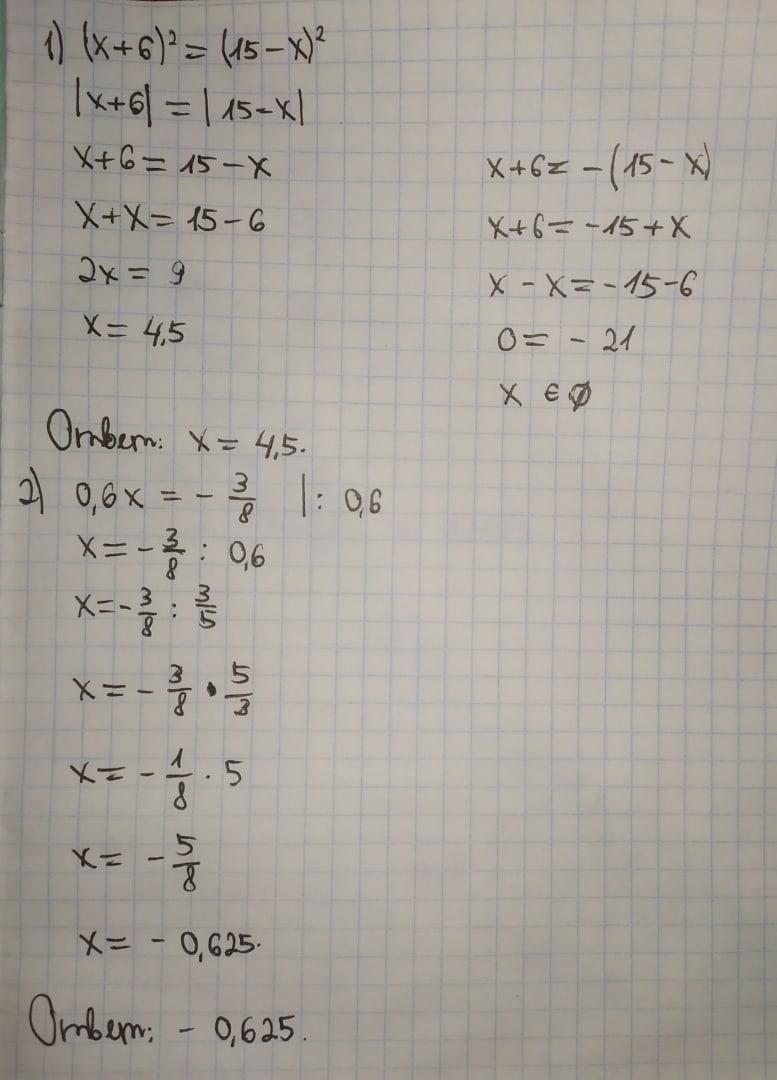 1) (x+6)² = (15-x)²
|x+6| = |15-x|
x+6 = 15-x
x+x = 15-6
2x = 9
x = 4,5
x+6 = -(15-x)
x+6 = -15+x
x - x = -15-6
0 = - 21
x ∈ ∅
Ответ: x = 4,5.
2) 0,6x = - 3/8 |: 0,6
x = - 3/8 : 0,6
x = - 3/8 : 3/5
x = - 3/8 · 5/3
x = - 1/8 · 5
x = - 5/8
x = - 0,625.
Ответ: - 0,625.